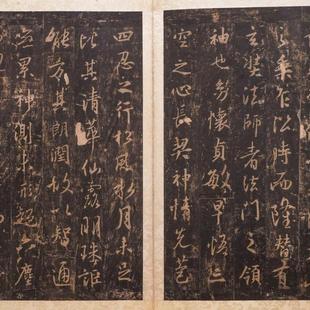 乘乍沿時而隆替有
玄奘法師者法門之領
袖也幼懷貞敏早悟三
空之心長契神情先苞
四忍之行松風水月未足
比其清華仙露明珠詎
能方其朗潤故以智通
無累神測未形超六塵